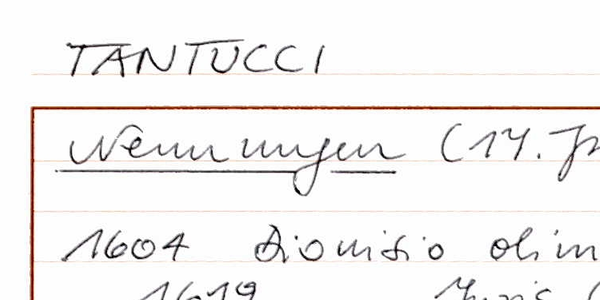 TANTUCCI
Nennungen (17. J
1604 Dionisio olim
1619